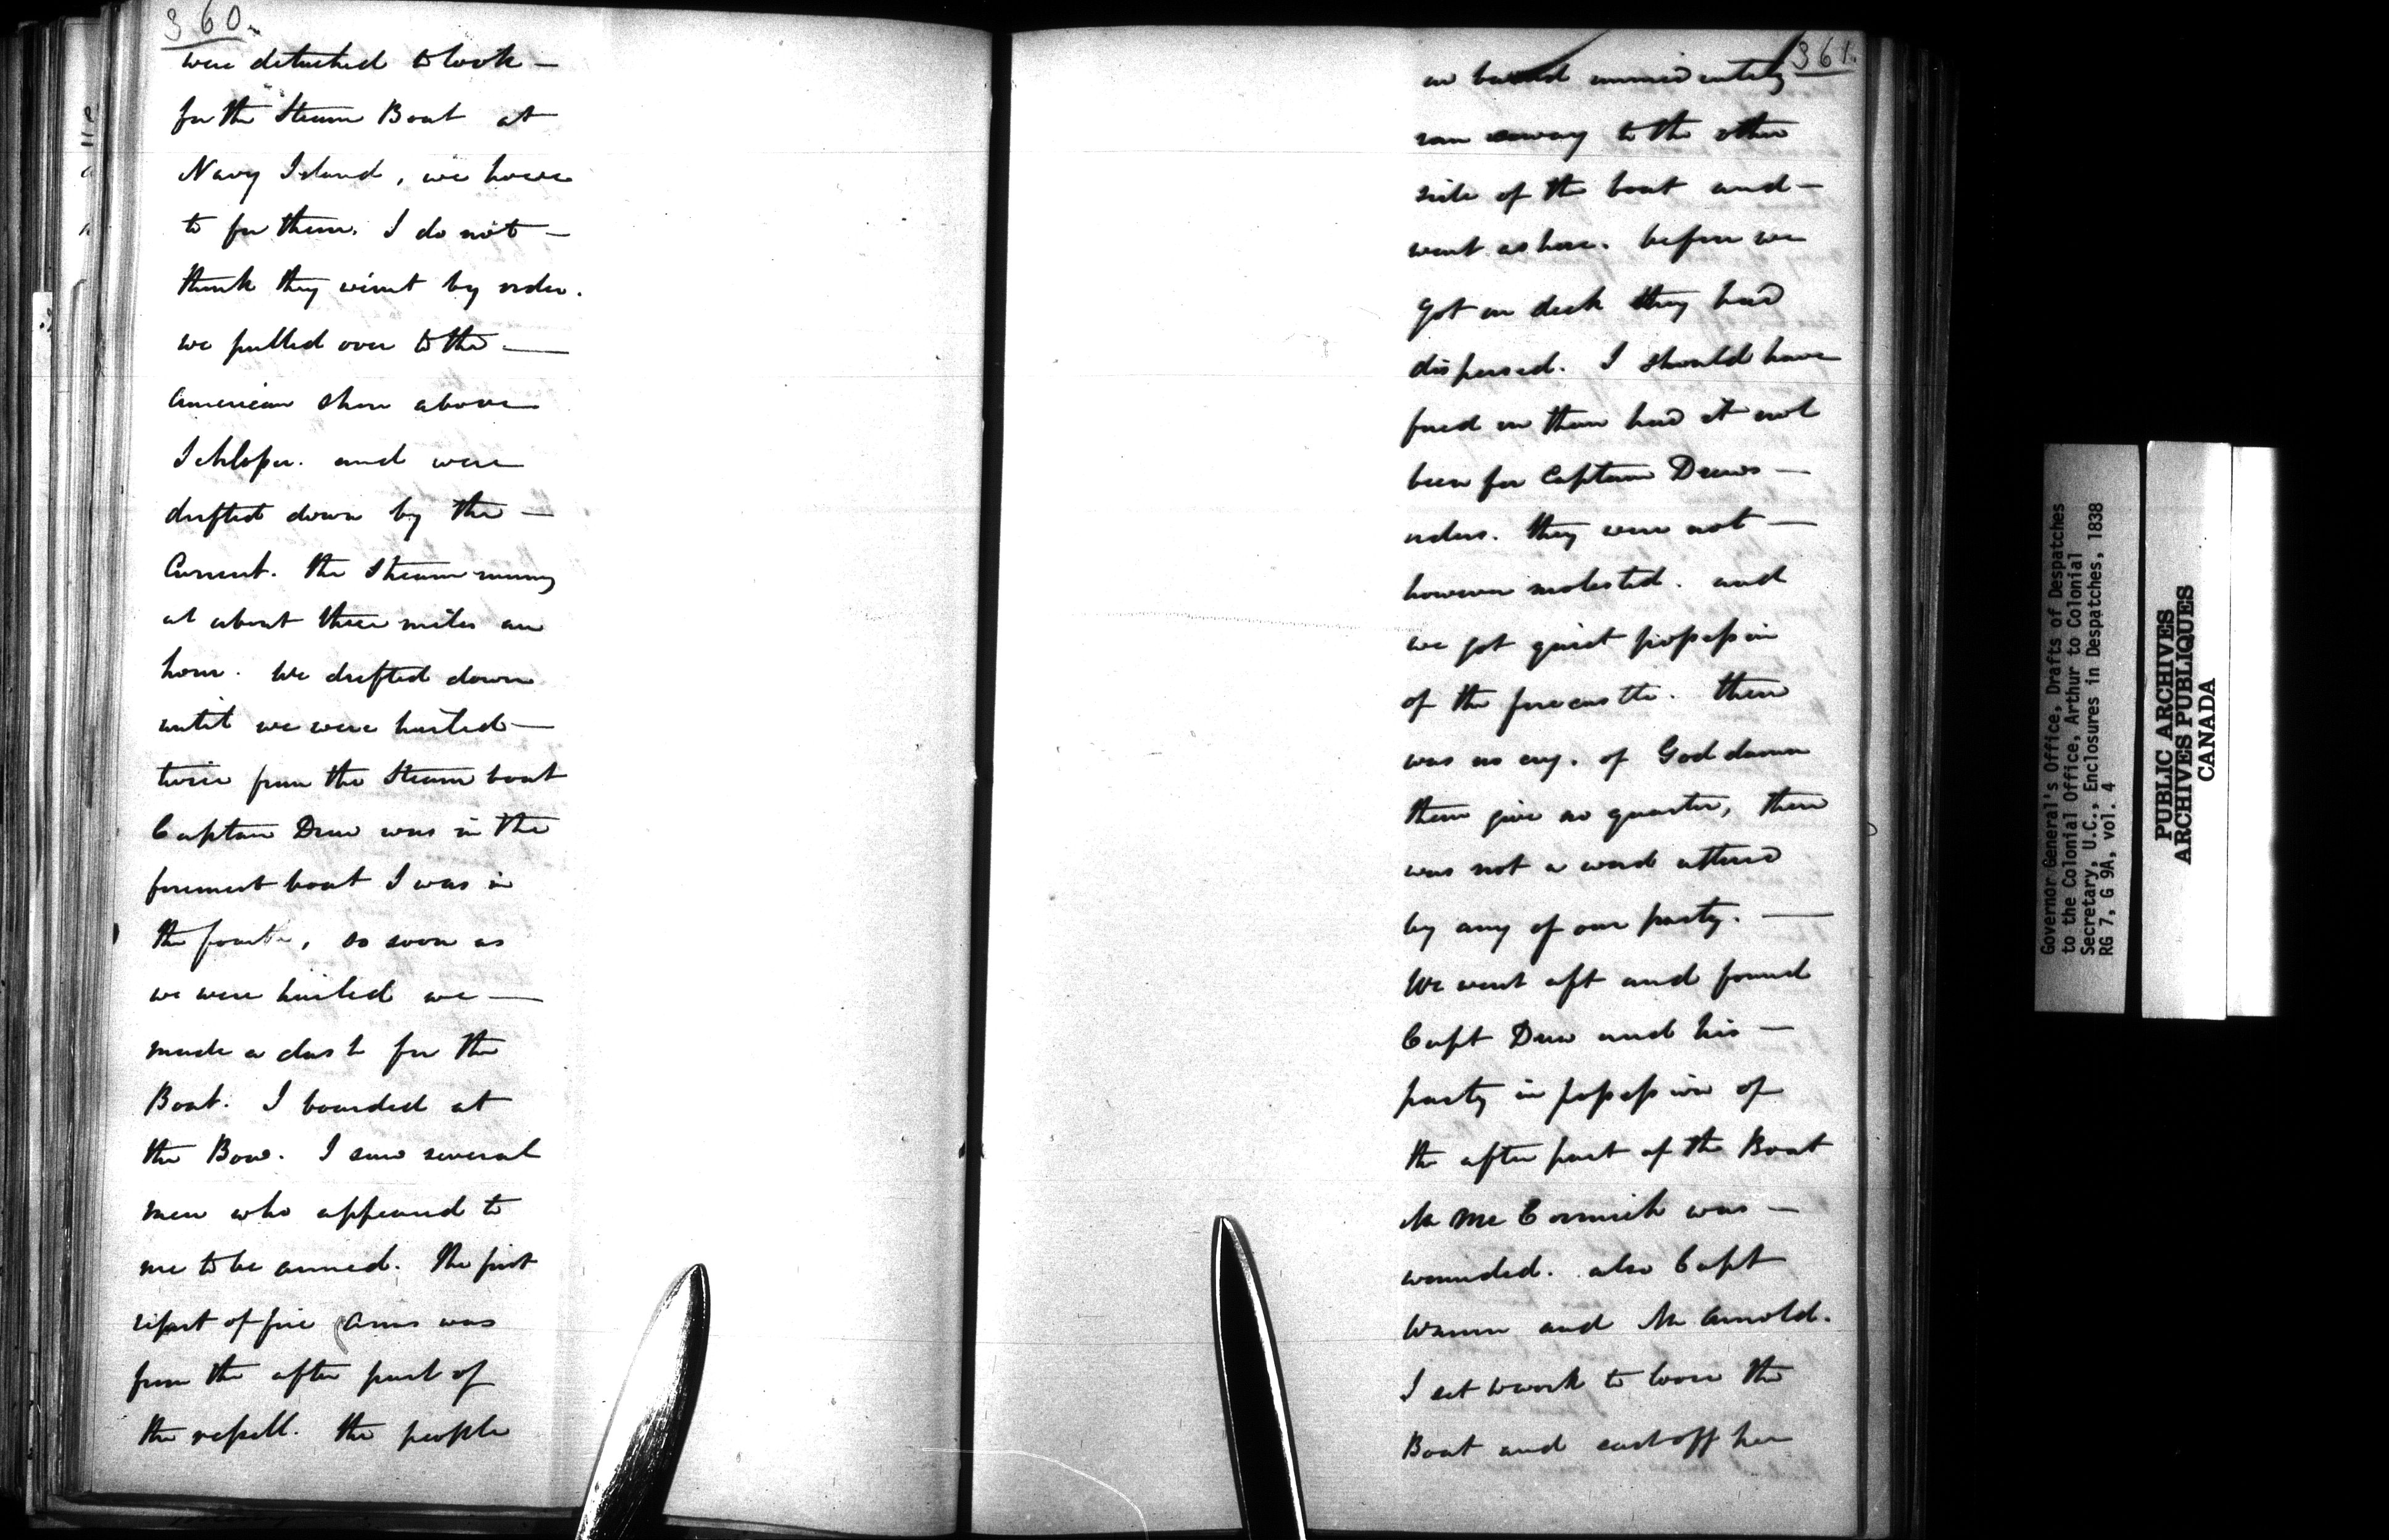 360.
were detached to look —
for the Steam Boat at
Navy Island, we hove
to for them. I do not —
think they went by order.
we pulled over to the —
American shore above
Schlosser. and were
drifted down by the —
Current. the Stream running
at about three miles an
hour. We drifted down
until we were hailed —
twice from the Steam boat
Captain Drew was in the
foremost boat I was in
the fourth, as soon as
we were hailed we —
made a dash for the
Boat. I boarded at
the Bow. I saw several
men who appeared to
me to be armed. The first
report of fire Arms was
from the after part of
the vessell. the people
361.
on board immediately
ran away to the other
side of the boat and —
went ashore. before we
got on deck they had
dispersed. I should have
fired on them had it not
been for Captain Drews —
orders. they were not —
however molested. and
we got quiet possession
of the forecastle. there
was no cry. of God damn
them give no quarter, there
was not a word uttered
by any of our party. —
We went aft and found
Capt Drew and his —
party in possession of
the after part of the Boat
Mr McCormick was —
wounded. also Capt
Warren and Mr Arnold.
I set to work to loose the
Boat and cast off her
Governor General's Office, Drafts of Despatches
to the Colonial Office, Arthur to Colonial
Secretary, U.C., Enclosures in Despatches, 1838
RG 7, G 9A, vol. 4
PUBLIC ARCHIVES
ARCHIVES PUBLIQUES
CANADA